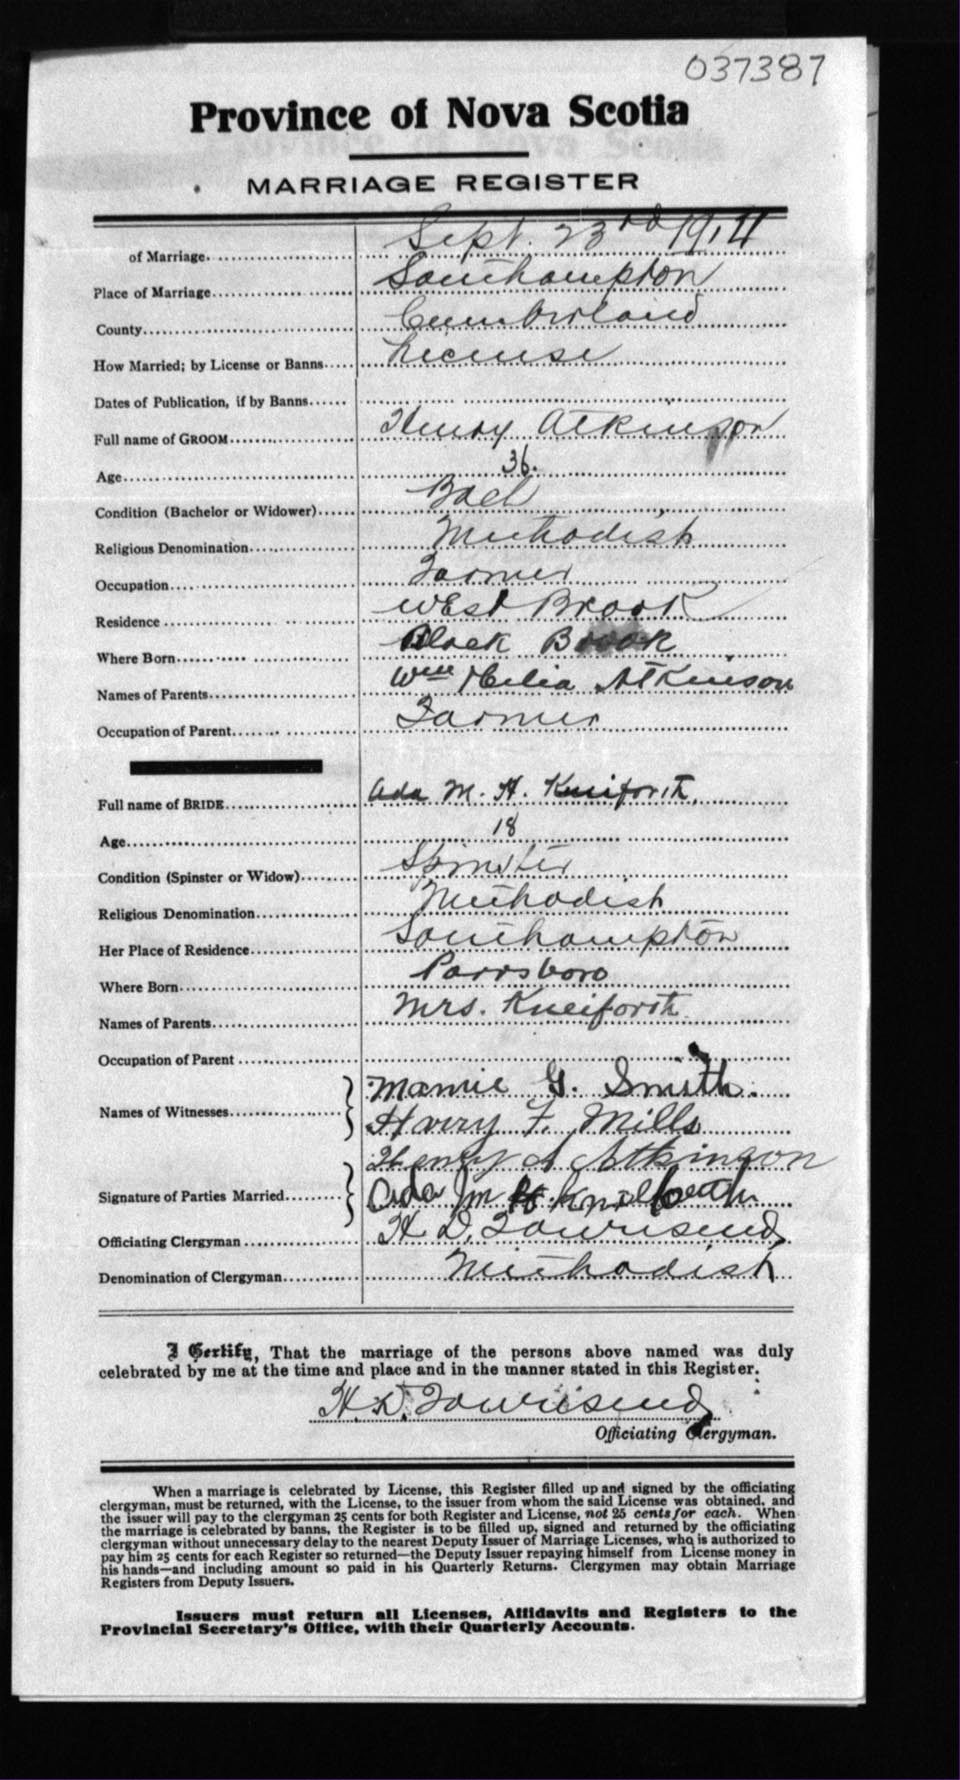 037387
Province of Nova Scotia
MARRIAGE REGISTER
of Marriage Sept. 23rd 1911
Place of Marriage Southampton
County Cumberland
How Married; by License or Banns License
Dates of Publication, if by Banns
Full name of GROOM Henry Atkinson
Age 36.
Condition (Bachelor or Widower) Bach
Religious Denomination Methodist
Occupation Farmer
Residence West Brook
Where Born Black Brook
Names of Parents Wm Celia Atkinson
Occupation of Parent Farmer
Full name of BRIDE Ada M. H. Kneiforth
Age 18
Condition (Spinster or Widow) Spinster
Religious Denomination Methodist
Her Place of Residence Southampton
Where Born Parrsboro
Names of Parents Mrs. Kneiforth
Occupation of Parent
Mamie G. Smith.
Names of Witnesses
Harry F. Mills
Henry A Atkinson
Signature of Parties Married
Ada M H
Officiating Clergyman H. D. Townsend
Denomination of Clergyman Methodist
I Certify, That the marriage of the persons above named was duly
celebrated by me at the time and place and in the manner stated in this Register.
H. D. Townsend
Officiating Clergyman.
When a marriage is celebrated by License, this Register filled up and signed by the officiating
clergyman, must be returned, with the License, to the issuer from whom the said License was obtained, and
the issuer will pay to the clergyman 25 cents for both Register and License, not 25 cents for each. When
the marriage is celebrated by banns, the Register is to be filled up, signed and returned by the officiating
clergyman without unnecessary delay to the nearest Deputy Issuer of Marriage Licenses, who is authorized to
pay him 25 cents for each Register so returned—the Deputy Issuer repaying himself from License money in
his hands—and including amount so paid in his Quarterly Returns. Clergymen may obtain Marriage
Registers from Deputy Issuers.
Issuers must return all Licenses, Affidavits and Registers to the
Provincial Secretary's Office, with their Quarterly Accounts.